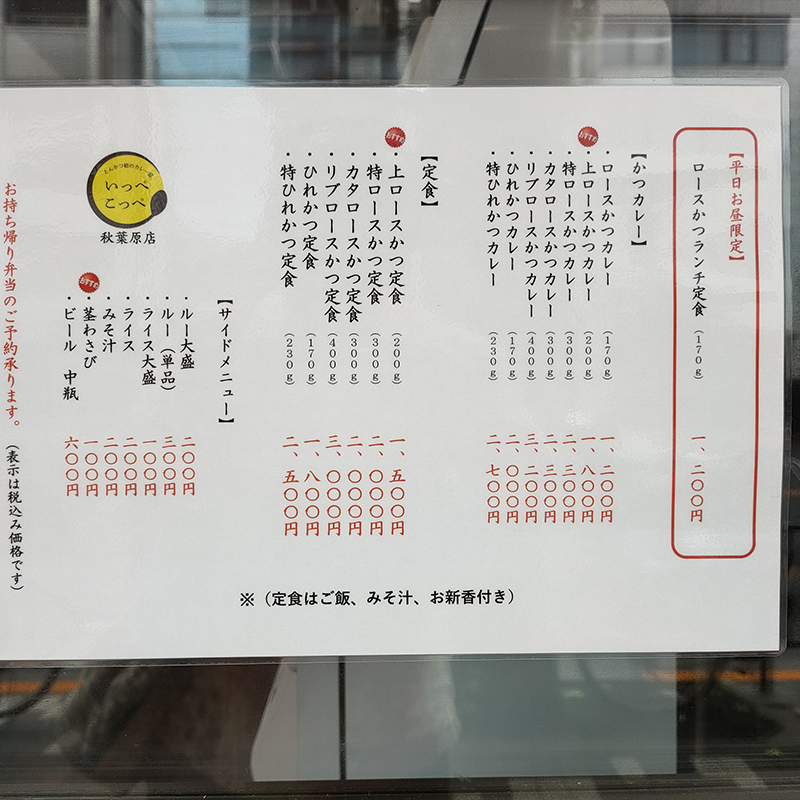 【平日お昼限定】
ロースかつランチ定食 (170g) 一、二〇〇円
【かつカレー】
・ロースかつカレー (170g) 一、二〇〇円
おすすめ
・上ロースかつカレー (200g) 一、八〇〇円
・特ロースかつカレー (300g) 二、三〇〇円
・カタロースかつカレー (300g) 二、三〇〇円
・リブロースかつカレー (400g) 三、二〇〇円
・ひれかつカレー (170g) 二、〇〇〇円
・特ひれかつカレー (230g) 二、七〇〇円
【定食】
おすすめ
・上ロースかつ定食 (200g) 一、五〇〇円
・特ロースかつ定食 (300g) 二、〇〇〇円
・カタロースかつ定食 (300g) 二、〇〇〇円
・リブロースかつ定食 (400g) 三、〇〇〇円
・ひれかつ定食 (170g) 一、八〇〇円
・特ひれかつ定食 (230g) 二、五〇〇円
※（定食はご飯、みそ汁、お新香付き）
とんかつ檍のカレー屋
いっぺ
こっぺ
秋葉原店
【サイドメニュー】
・ルー大盛 二〇〇円
・ルー（単品） 三〇〇円
・ライス大盛 一〇〇円
・ライス 二〇〇円
・みそ汁 二〇〇円
おすすめ
・茎わさび 一〇〇円
・ビール 中瓶 六〇〇円
お持ち帰り弁当のご予約承ります。（表示は税込み価格です）